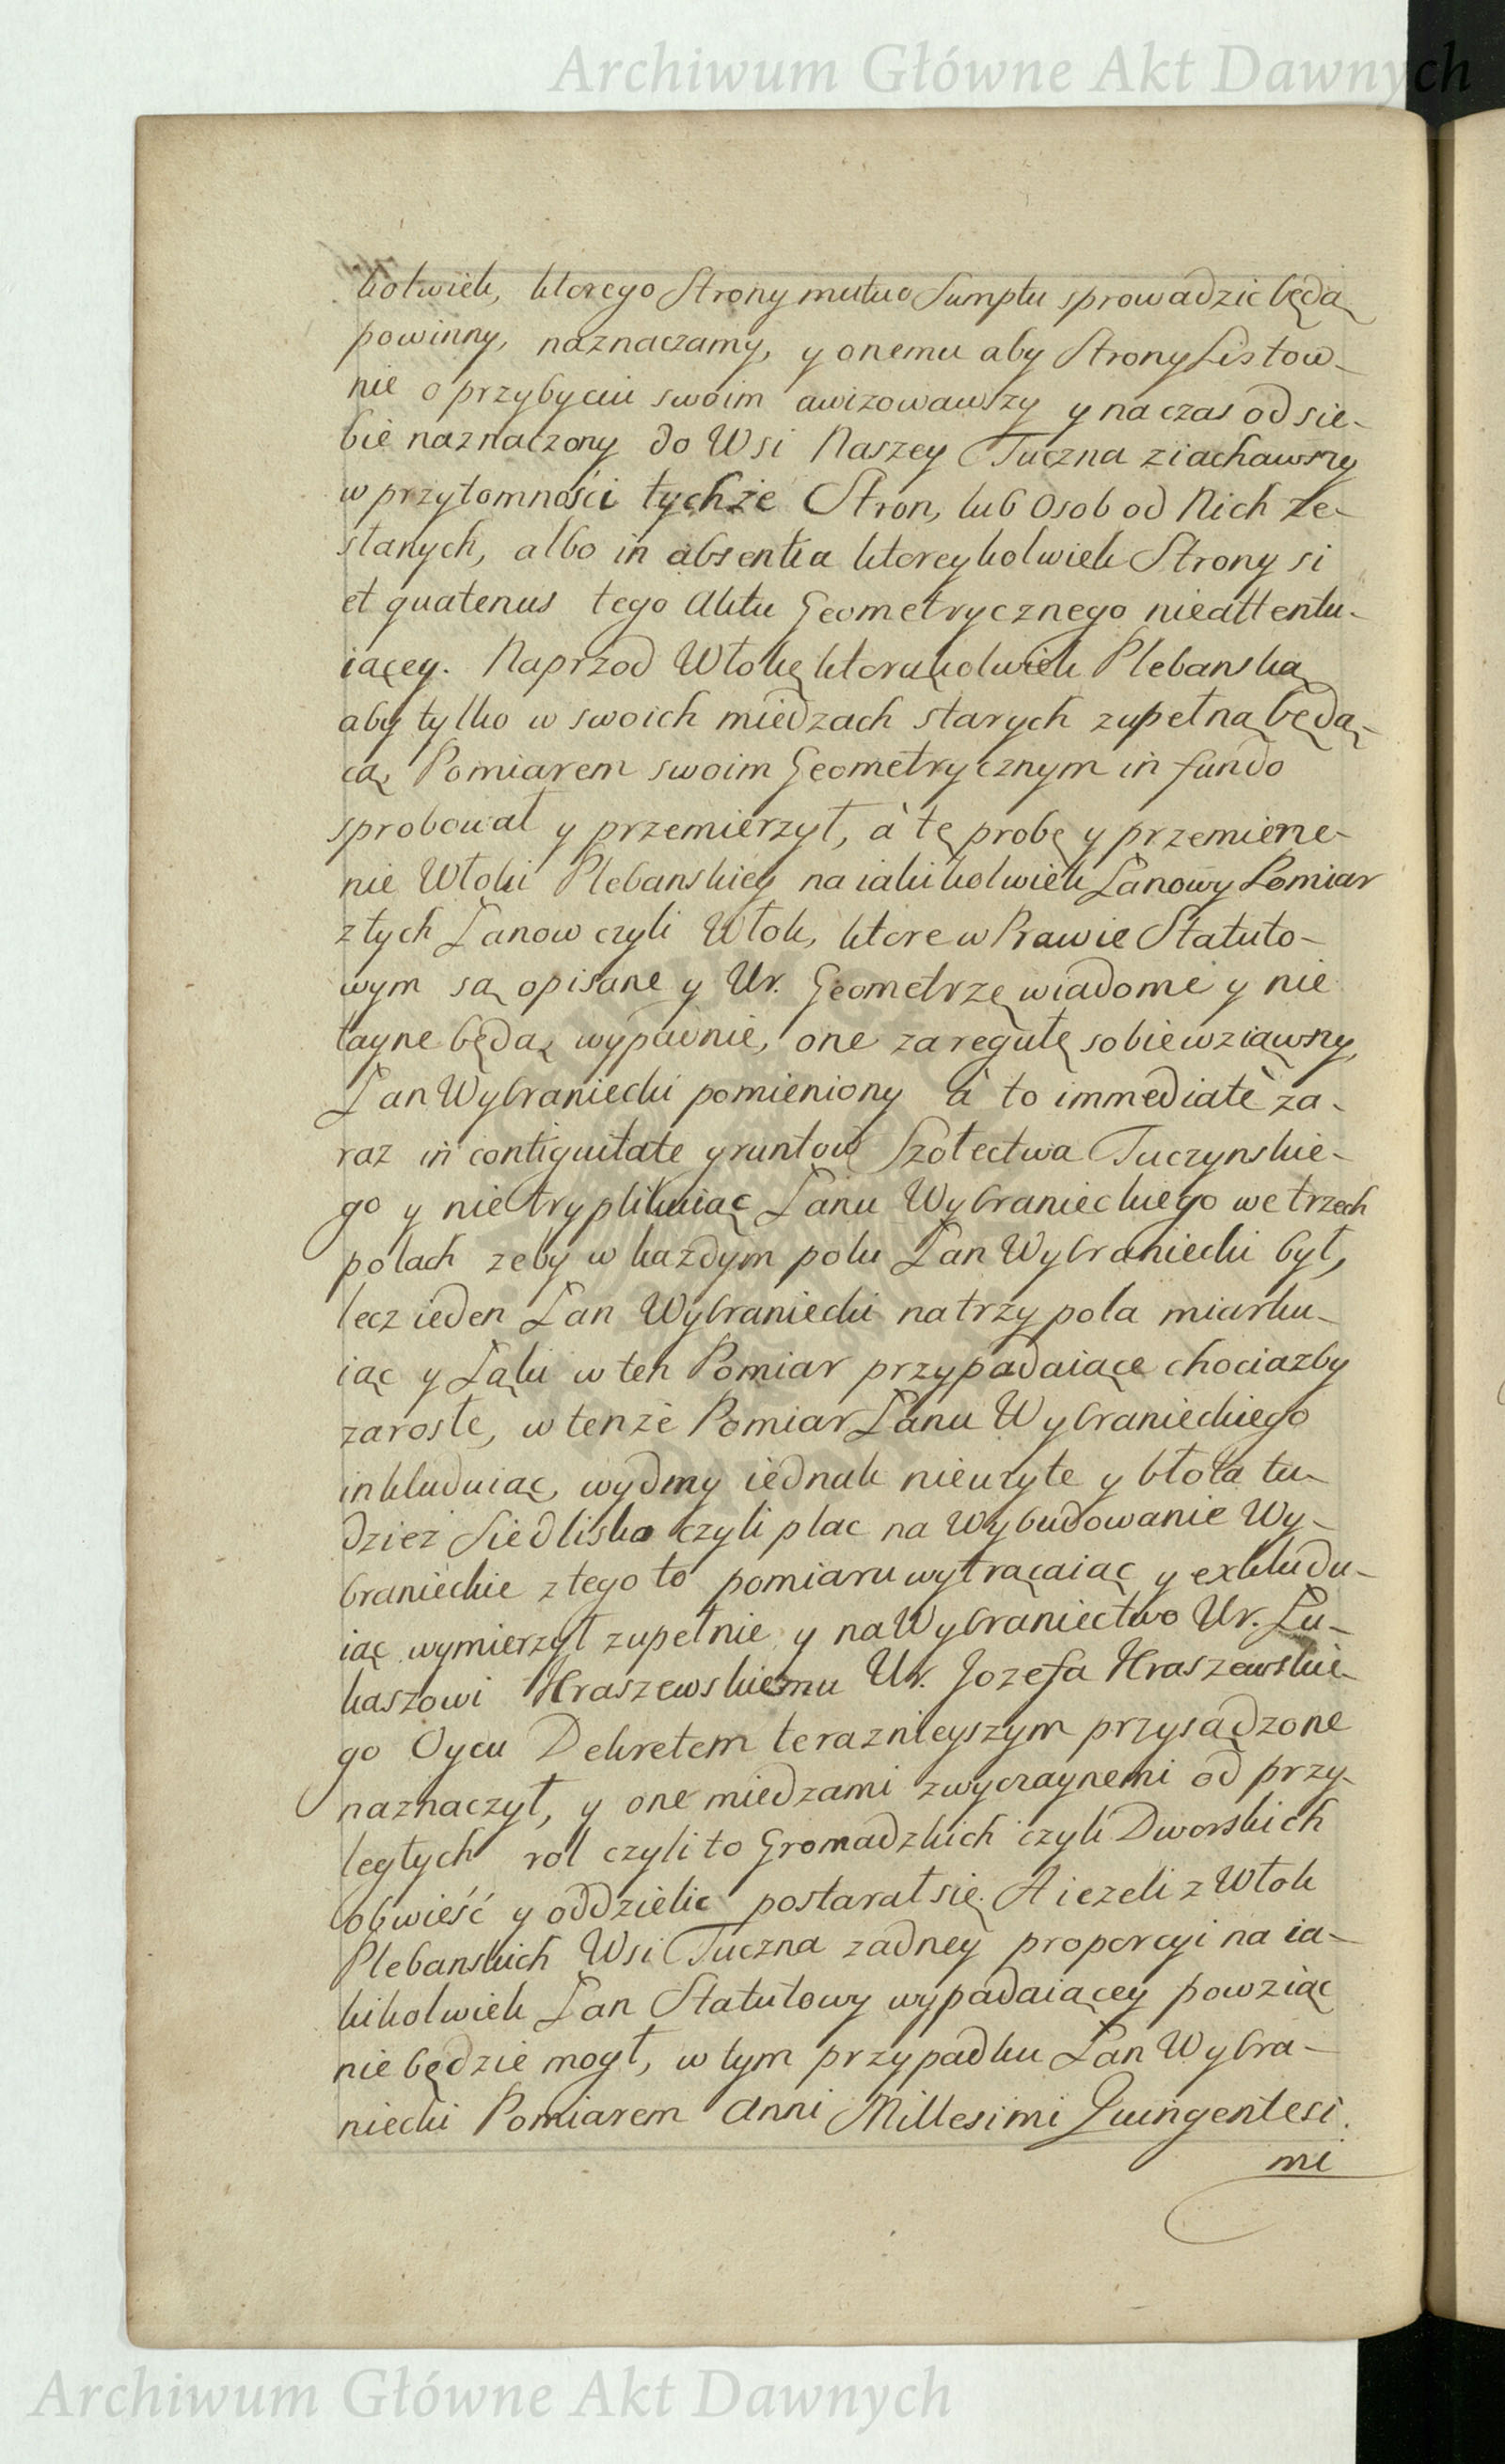 Archiwum Główne Akt Dawnych
kolwiek, ktorego Strony mutuo Sumptu sprowadzić będą
powinny, naznaczamy, y onemu aby Strony Listow-
nie o przybyciu swoim awizowawszy y na czas od sie-
bie naznaczony do Wsi Naszey Tuczna ziachawszy
w przytomności tychże Stron, lub Osob od Nich ze-
słanych, albo in absentia ktoreykolwiek Strony si
et quatenus tego Aktu Geometrycznego nieattentu-
iącey. Naprzod Włokę ktorąkolwiek Plebanską
aby tylko w swoich miedzach starych zupełną będą-
cą, Pomiarem swoim Geometrycznym in fundo
sprobował y przemierzył, à tę probę y przemierze-
nie Włoki Plebanskiey na iakikolwiek Łanowy Pomiar
z tych Łanow czyli Włok, ktore w Prawie Statuto-
wym są opisane y Ur. Geometrze wiadome y nie
tayne będą, wypadnie, one za regułę sobie wziąwszy,
Łan Wybraniecki pomieniony à to immediatè za-
raz in contiguitate gruntow Szołectwa Tuczynskie-
go y nie tryplikuiąc Łanu Wybranieckiego we trzech
polach zeby w kazdym polu Łan Wybraniecki był,
lecz ieden Łan Wybraniecki na trzy pola miarku-
iąc y Łąki w ten Pomiar przypadaiące chociazby
zarosłe, w tenże Pomiar Łanu Wybranieckiego
inkluduiąc, wydmy iednak nieuzyte y błota tu-
dziez Siedliska czyli plac na Wybudowanie Wy-
branieckie z tego to pomiaru wytrącaiąc y exkludu-
iąc wymierzył zupełnie y na Wybraniectwo Ur. Łu-
kaszowi Kraszewskiemu Ur. Jozefa Kraszewskie-
go Oycu Dekretem teraznieyszym przysądzone
naznaczył, y one miedzami zwyczaynemi od przy-
ległych rol czyli to Gromadzkich czyli Dworskich
obwieść y oddzielic postarał się. A iezeli z Włok
Plebanskich Wsi Tuczna zadney proporcyi na ia-
kikolwiek Łan Statutowy wypadaiącey powziąć
nie będzie mogł, w tym przypadku Łan Wybra-
niecki Pomiarem Anni Millesimi Quingentesi.
mi
Archiwum Główne Akt Dawnych